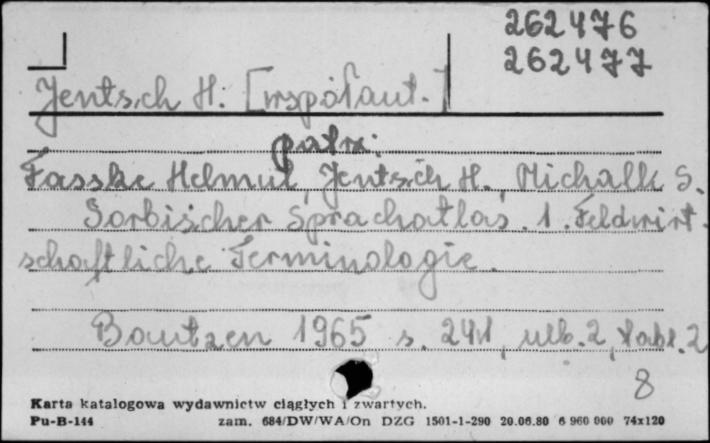 262476
262477
Jentsch H. [współaut.]
patrz:
Fasske Helmut, Jentsch H., Michalk S.
Sorbischer Sprachatlas. 1. Feldwirt-
schaftliche Terminologie.
Bautzen 1965 s. 241, 2, tabl. 2
8
Karta katalogowa wydawnictw ciągłych i zwartych.
Pu-B-144 zam. 684/DW/WA/On DZG 1501-1-290 20.06.80 6 960 000 74x120